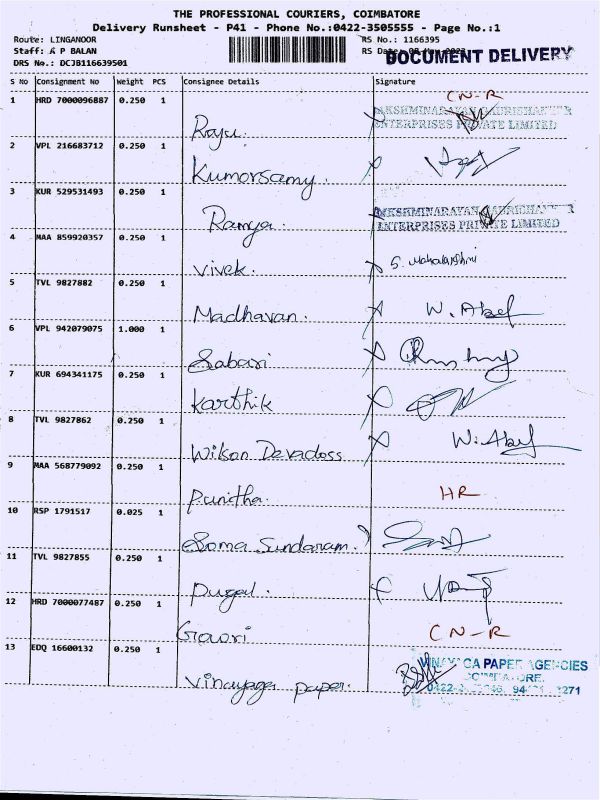 THE PROFESSIONAL COURIERS, COIMBATORE
Delivery Runsheet - P41 - Phone No.:0422-3505555 - Page No.:1
Route: LINGANOOR RS No.: 1166395
Staff: A P BALAN RS Date:
DOCUMENT DELIVERY
DRS No.: DCJB116639501
S No Consignment No Weight PCS Consignee Details Signature
1 HRD 7000096887 0.250 1 Raju. CN-R
ENTERPRISES PRIVATE LIMITED
2 VPL 216683712 0.250 1 Kumorsamy.
3 KUR 529531493 0.250 1 Ramya
ENTERPRISES PRIVATE LIMITED
4 MAA 859920357 0.250 1 Vivek. S. Mahalakshmi
5 TVL 9827882 0.250 1 Madhavan. W. Abef
6 VPL 942079075 1.000 1 Sabari
7 KUR 694341175 0.250 1 Karthik
8 TVL 9827862 0.250 1 Wilson Devadoss W. Abef
9 MAA 568779092 0.250 1 Punitha. HR
10 RSP 1791517 0.025 1 Soma Sundaram.
11 TVL 9827855 0.250 1 Pugal.
12 HRD 7000077487 0.250 1 Gowri CN-R
13 EDQ 16600132 0.250 1 Vinayaga paper.
PAPER AGENCIES